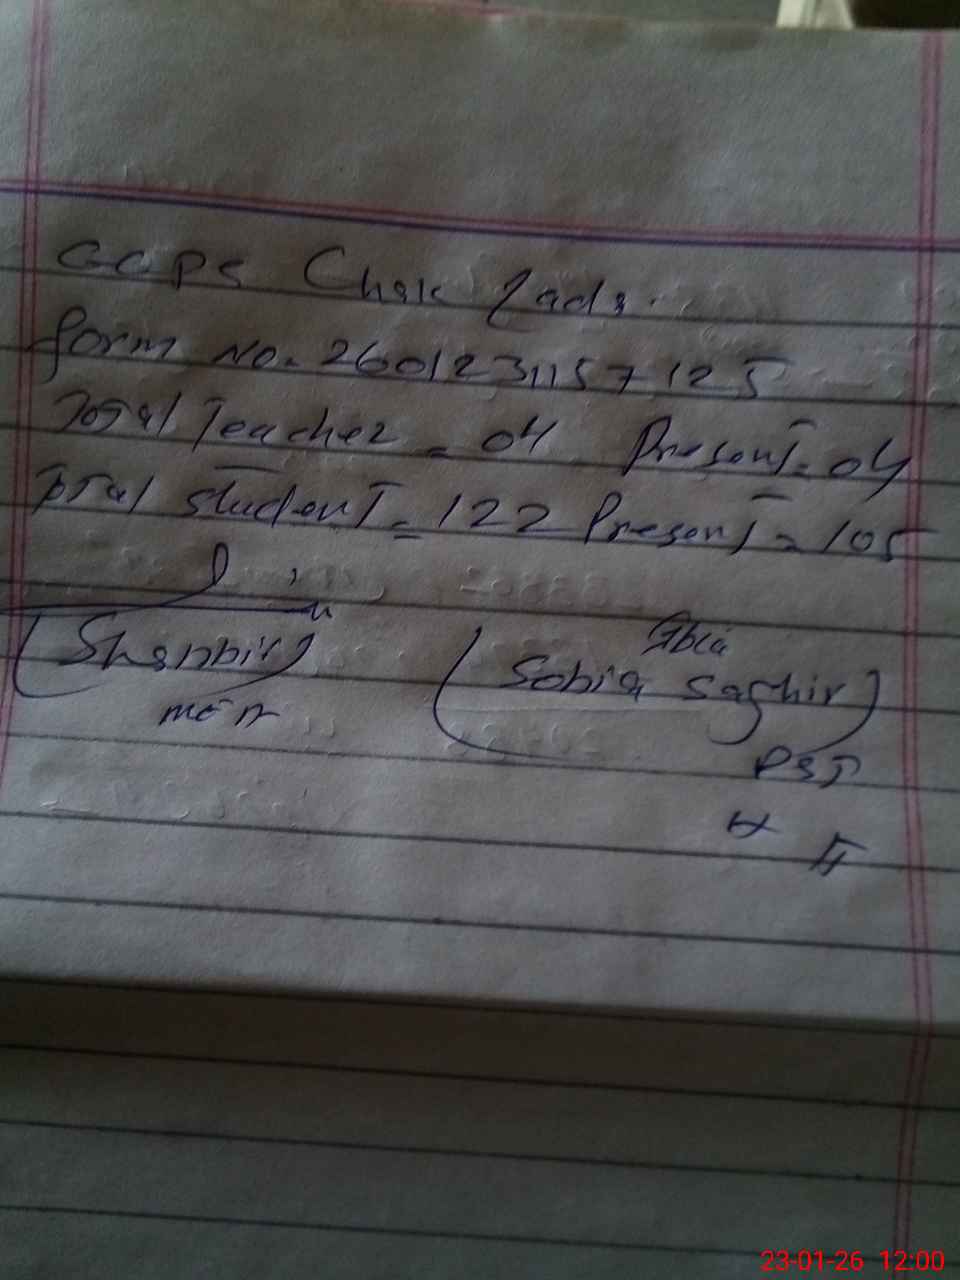 GGPS Chak
Form No. 2601231157125
Total Teacher = 04 Present = 04
Total student = 122 Present = 105
(Shanbir)
Sobia
(Sobia Saghir)
PST
23-01-26 12:00